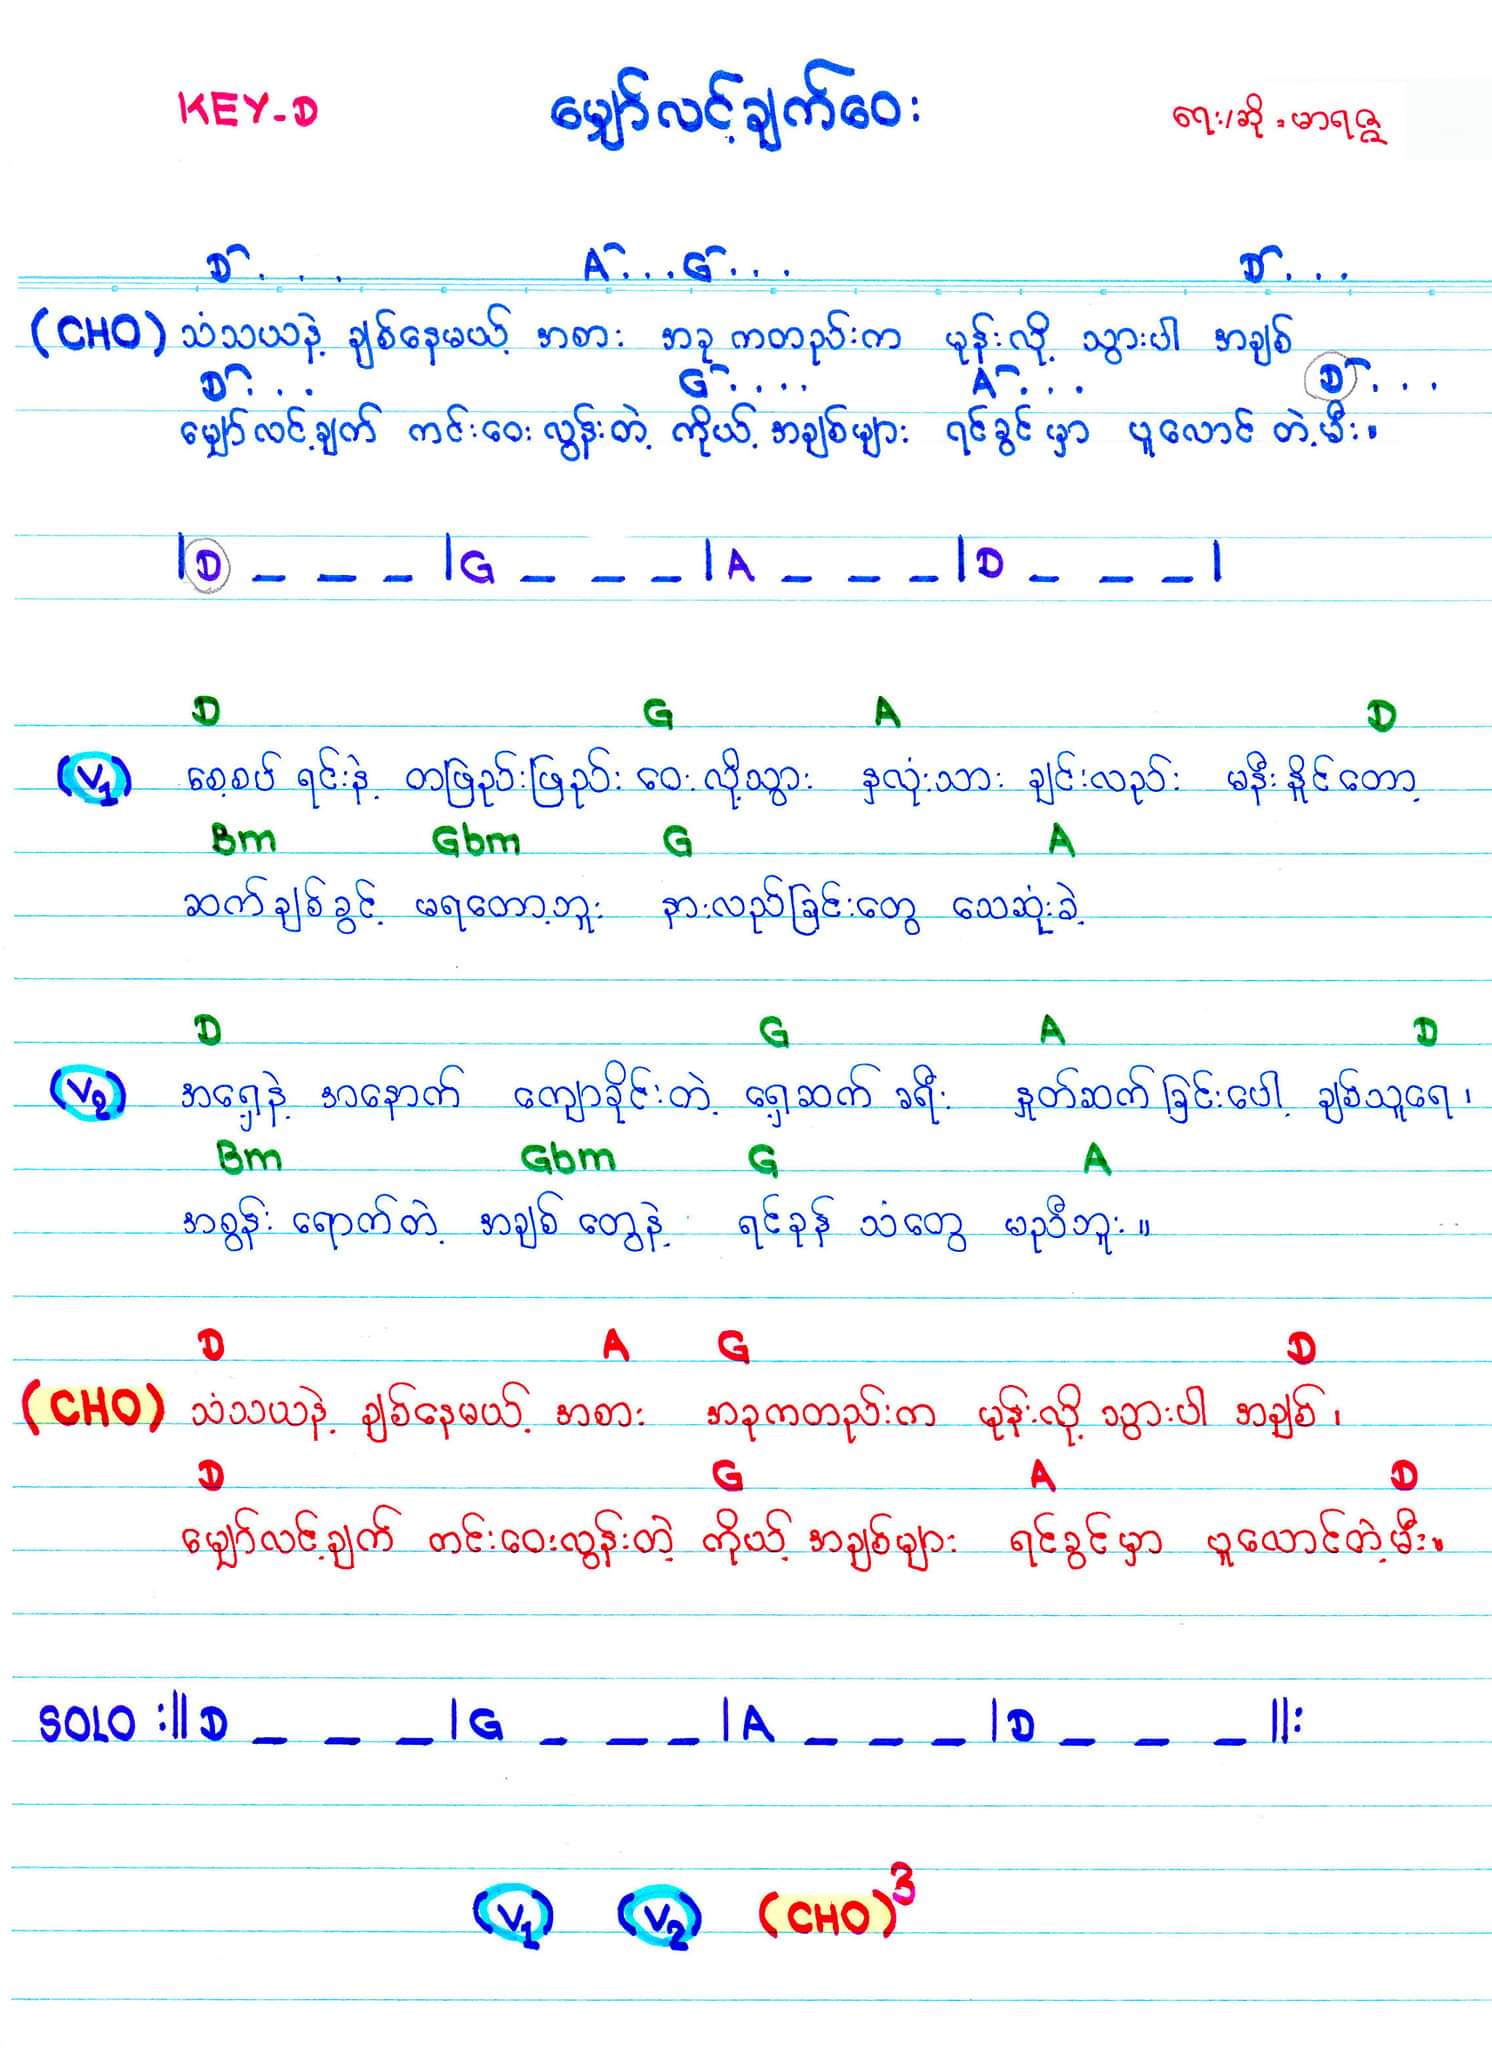 KEY-D
မျှော်လင့်ချက်ဝေး
ရေး/ဆို = မာရဇ္ဇ
D . . . . A . . . G . . . D . . .
(CHO) သံသယနဲ့ ချစ်နေမယ့် အစား အခု ကတည်းက မုန်းလို့ သွားပါ အချစ်
D . . . G . . . . A . . . D . . . .
မျှော်လင့်ချက် ကင်းဝေး လွန်းတဲ့ ကိုယ့် အချစ်များ ရင်ခွင်မှာ ပူလောင် တဲ့မီး။
| D _ _ _ | G _ _ _ | A _ _ _ | D _ _ _ |
D G A D
(V1) စေ့စပ် ရင်းနဲ့ တဖြည်းဖြည်း ဝေး လို့သွား နှလုံးသား ချင်းလည်း မနီးနိုင်တော့
Bm Gbm G A
ဆက်ချစ်ခွင့် မရတော့ဘူး နားလည်ခြင်းတွေ သေဆုံးခဲ့
D G A D
(V2) အရှေ့နဲ့ အနောက် ကျောခိုင်းတဲ့ ရှေ့ဆက် ခရီး နှုတ်ဆက်ခြင်းပေါ့ ချစ်သူရေ၊
Bm Gbm G A
အစွန်း ရောက်တဲ့ အချစ် တွေနဲ့ ရင်ခုန် သံတွေ မညီဘူး။
D A G D
(CHO) သံသယနဲ့ ချစ်နေမယ့် အစား အခုကတည်းက မုန်းလို့ သွားပါ အချစ်၊
D G A D
မျှော်လင့်ချက် ကင်းဝေးလွန်းတဲ့ ကိုယ့် အချစ်များ ရင်ခွင်မှာ ပူလောင်တဲ့မီး။
SOLO :|| D _ _ _ | G _ _ _ | A _ _ _ | D _ _ _ ||:
(V1) (V2) (CHO)3